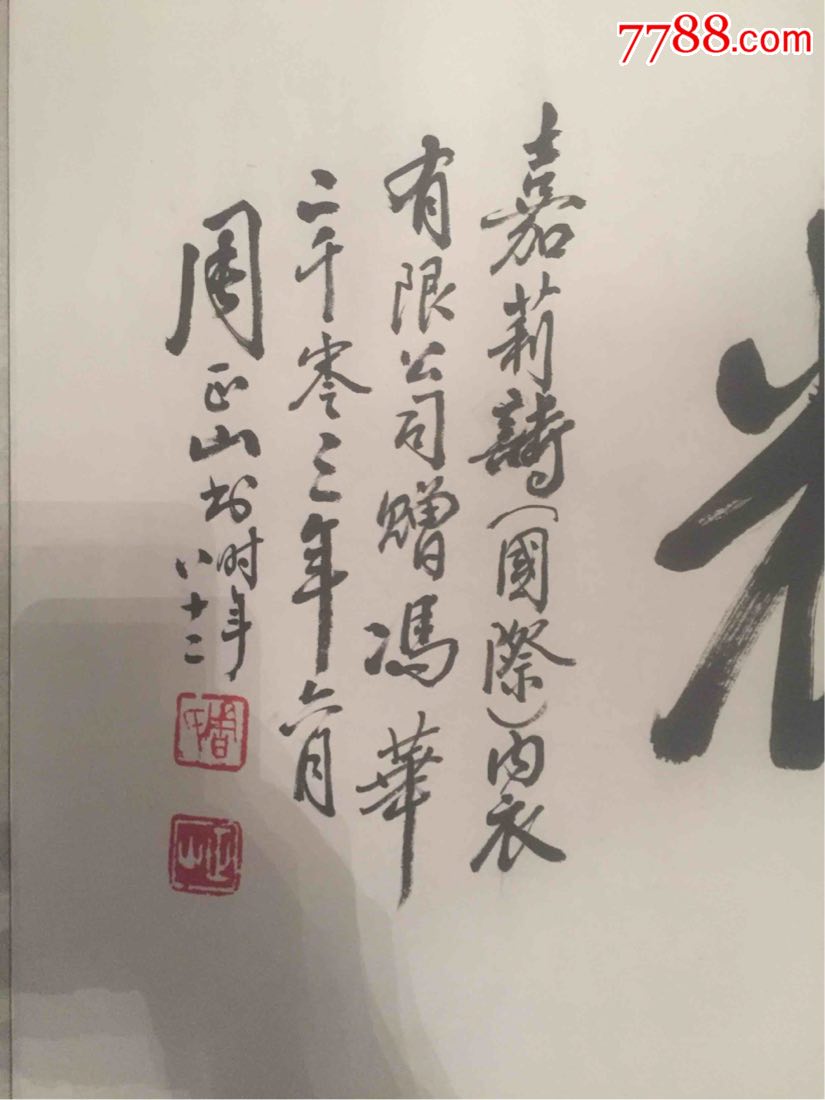 7788.com
嘉莉詩(國際)内衣
有限公司贈馮華
二千零三年六月
周正山书时年
八十二
周氏
正山